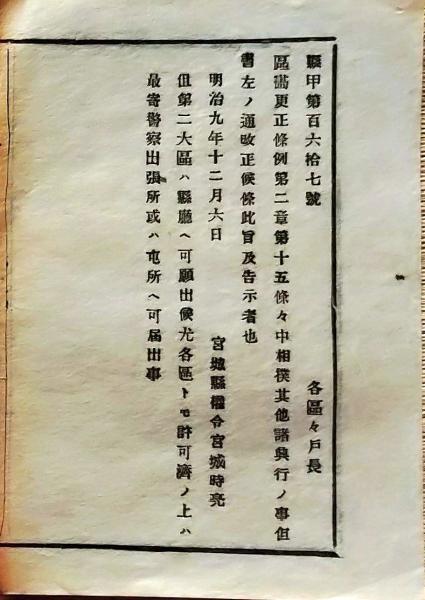 縣甲第百六拾七號
各區々戸長
區畵更正條例第二章第十五條々中相撲其他諸興行ノ事但
書左ノ通改正候條此旨及告示者也
明治九年十二月六日
宮城縣權令宮城時亮
但第二大區ハ縣廳ヘ可願出候尤各區トモ許可濟ノ上ハ
最寄警察出張所或ハ屯所ヘ可届出事